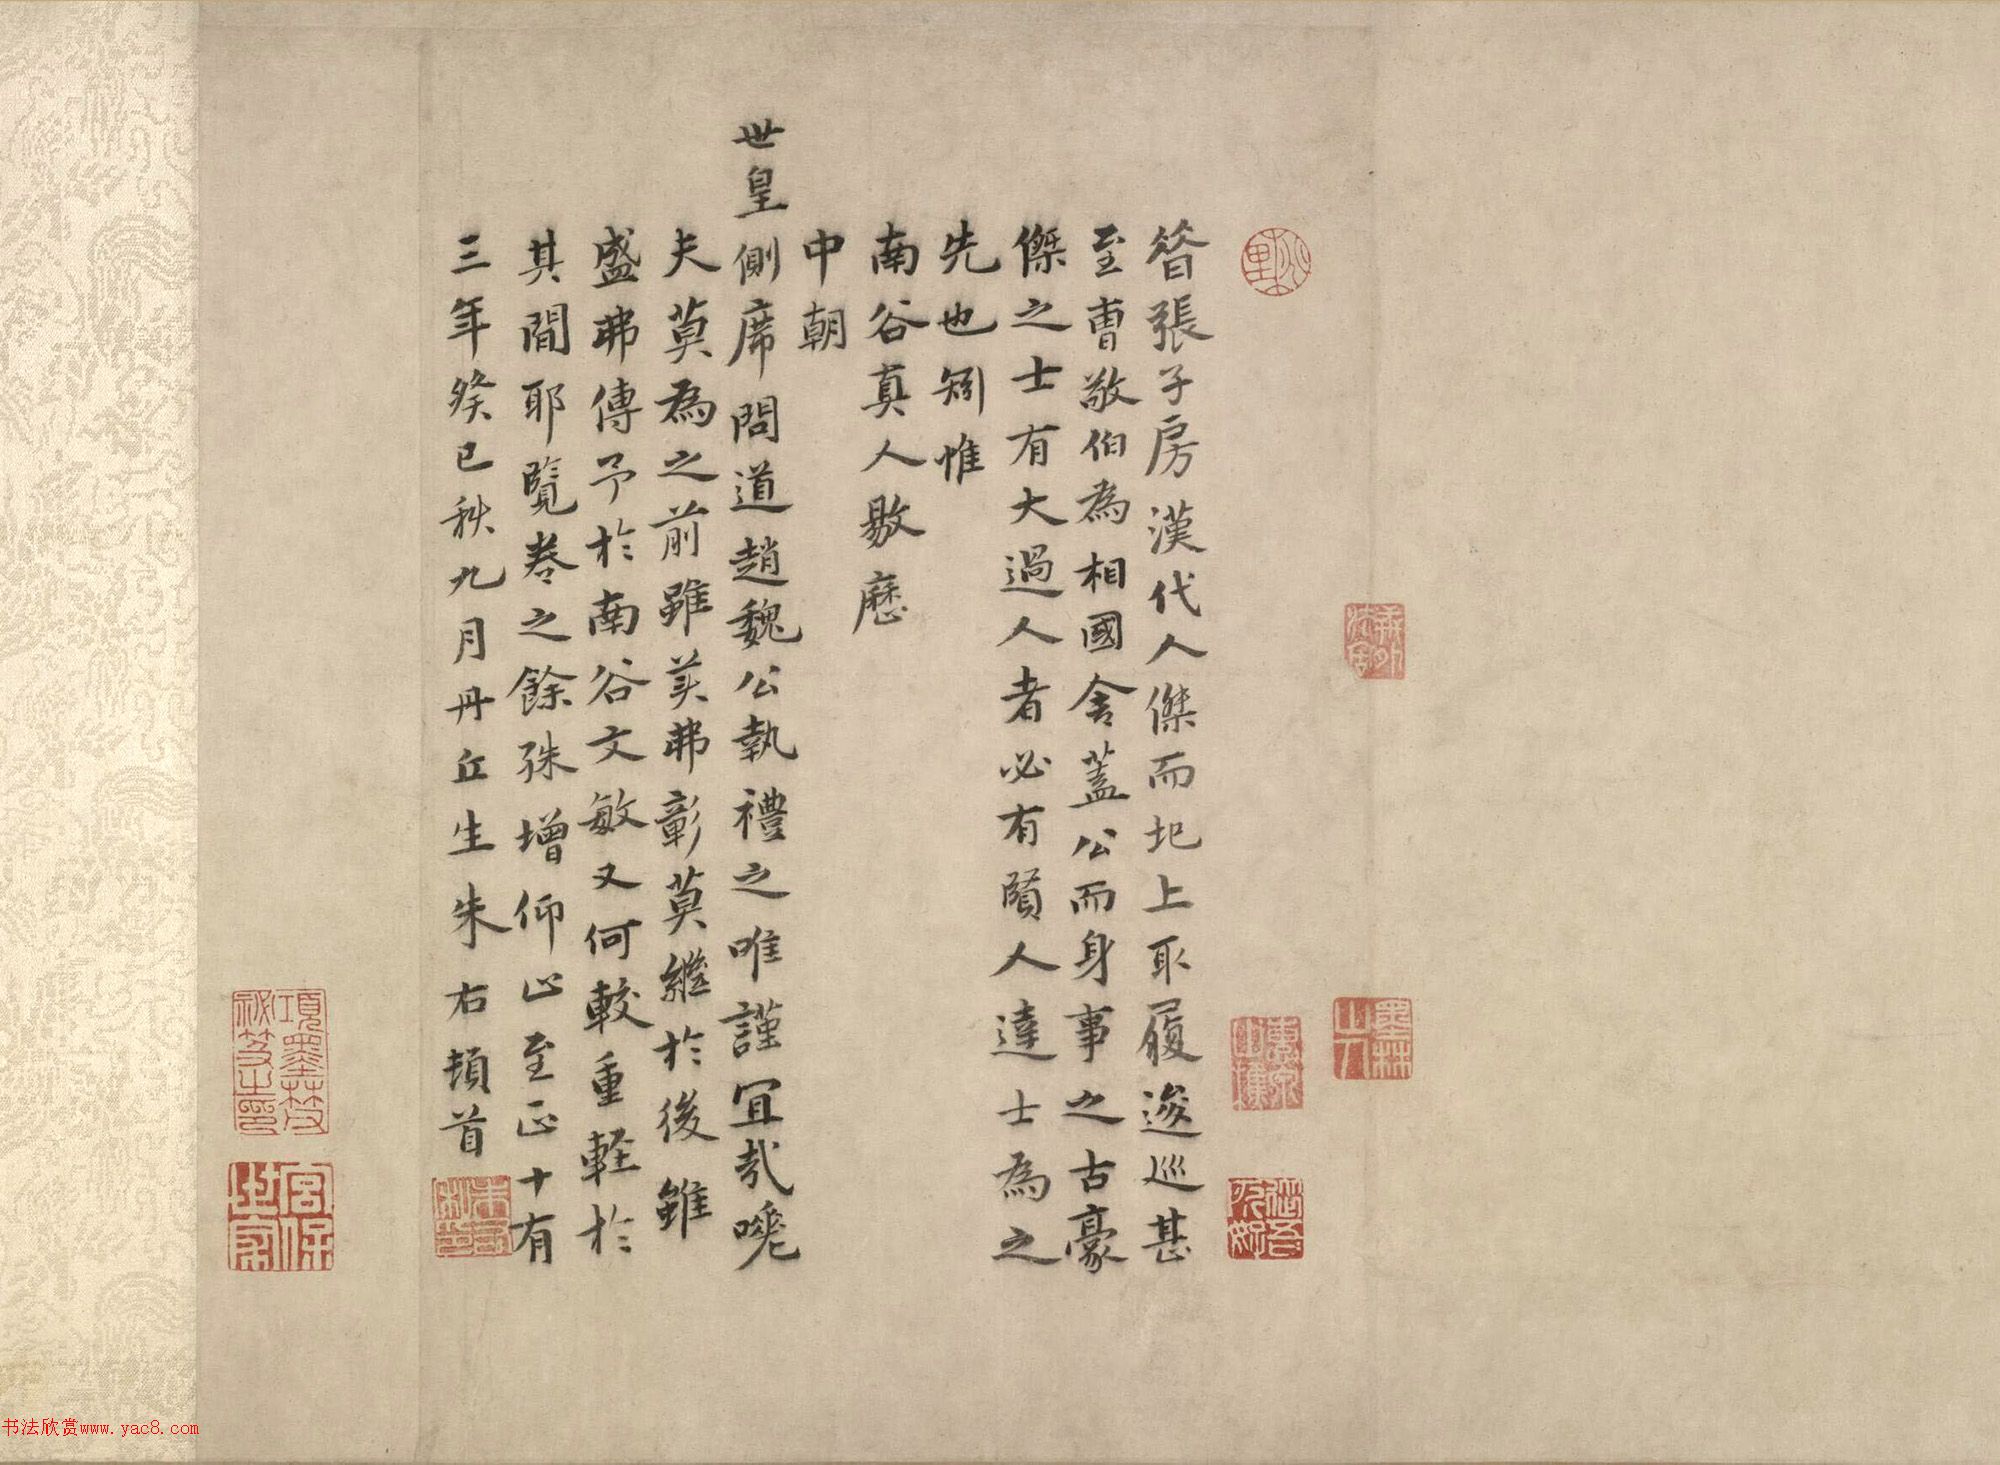 昝張子房漢代人傑而圯上取履逡巡甚
至曹敬伯為相國舍蓋公而身事之古豪
傑之士有大過人者必有賢人達士為之
先也矧惟
南谷真人敭歷
中朝
世皇側席問道趙魏公執禮之唯謹冝哉嘅
夫莫為之前雖美弗彰莫繼於後雖
盛弗傳予於南谷文敏又何較重軽於
其間耶覧卷之餘殊增仰止至正十有
三年癸巳秋九月丹丘生朱右頓首
項墨林父秘笈之印
宮保世家
墨林山人
书法欣赏www.yac8.com